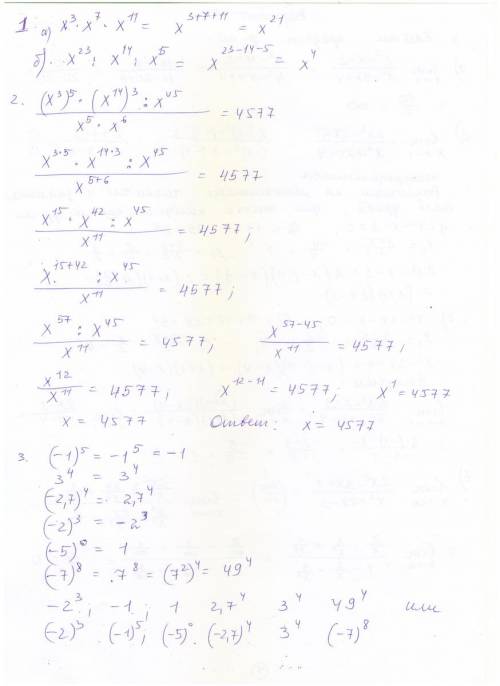 1 а) x³ · x⁷ · x¹¹ = x³⁺⁷⁺¹¹ = x²¹
б) x²³ : x¹⁴ : x⁵ = x²³⁻¹⁴⁻⁵ = x⁴
2. (x³)⁵ · (x¹⁴)³ : x⁴⁵ / x⁵ · x⁶ = 4577
x³˙⁵ · x¹⁴˙³ : x⁴⁵ / x⁵⁺⁶ = 4577
x¹⁵ · x⁴² : x⁴⁵ / x¹¹ = 4577;
x¹⁵⁺⁴² : x⁴⁵ / x¹¹ = 4577;
x⁵⁷ : x⁴⁵ / x¹¹ = 4577; x⁵⁷⁻⁴⁵ / x¹¹ = 4577;
x¹² / x¹¹ = 4577; x¹²⁻¹¹ = 4577; x¹ = 4577
x = 4577 Ответ: x = 4577
3. (-1)⁵ = -1⁵ = -1
3⁴ = 3⁴
(-2,7)⁴ = 2,7⁴
(-2)³ = -2³
(-5)⁰ = 1
(-7)⁸ = 7⁸ = (7²)⁴ = 49⁴
-2³; -1; 1 2,7⁴ 3⁴ 49⁴ или
(-2)³ (-1)⁵; (-5)⁰ (-2,7)⁴ 3⁴ (-7)⁸